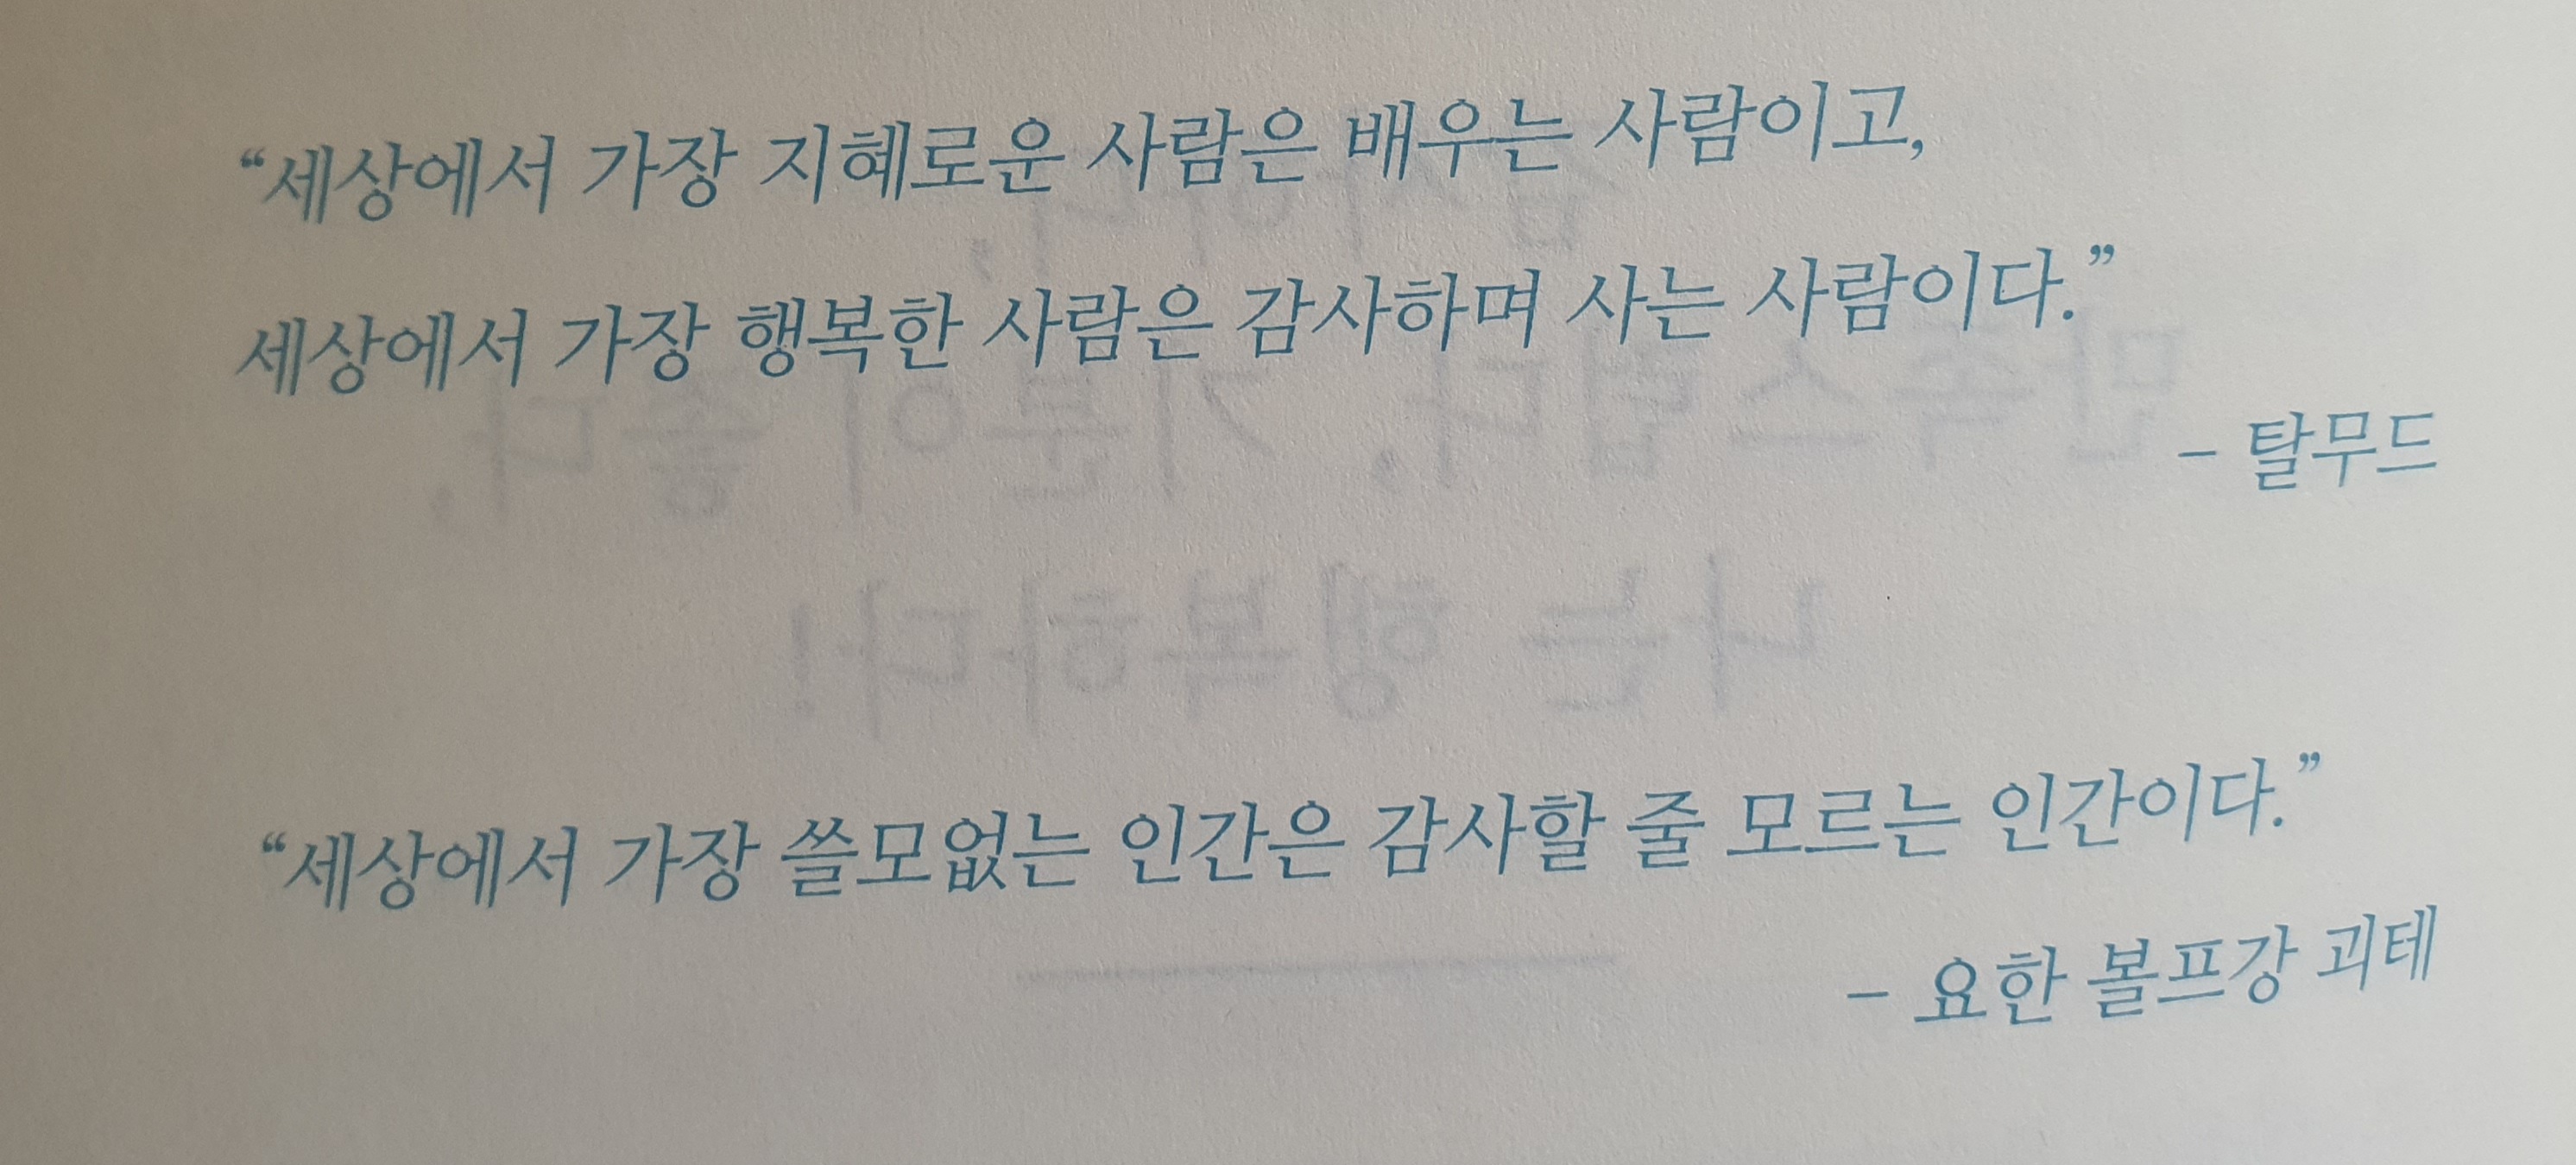 “세상에서 가장 지혜로운 사람은 배우는 사람이고,
세상에서 가장 행복한 사람은 감사하며 사는 사람이다.”
– 탈무드
나는 행복하다!
“세상에서 가장 쓸모없는 인간은 감사할 줄 모르는 인간이다.”
– 요한 볼프강 괴테